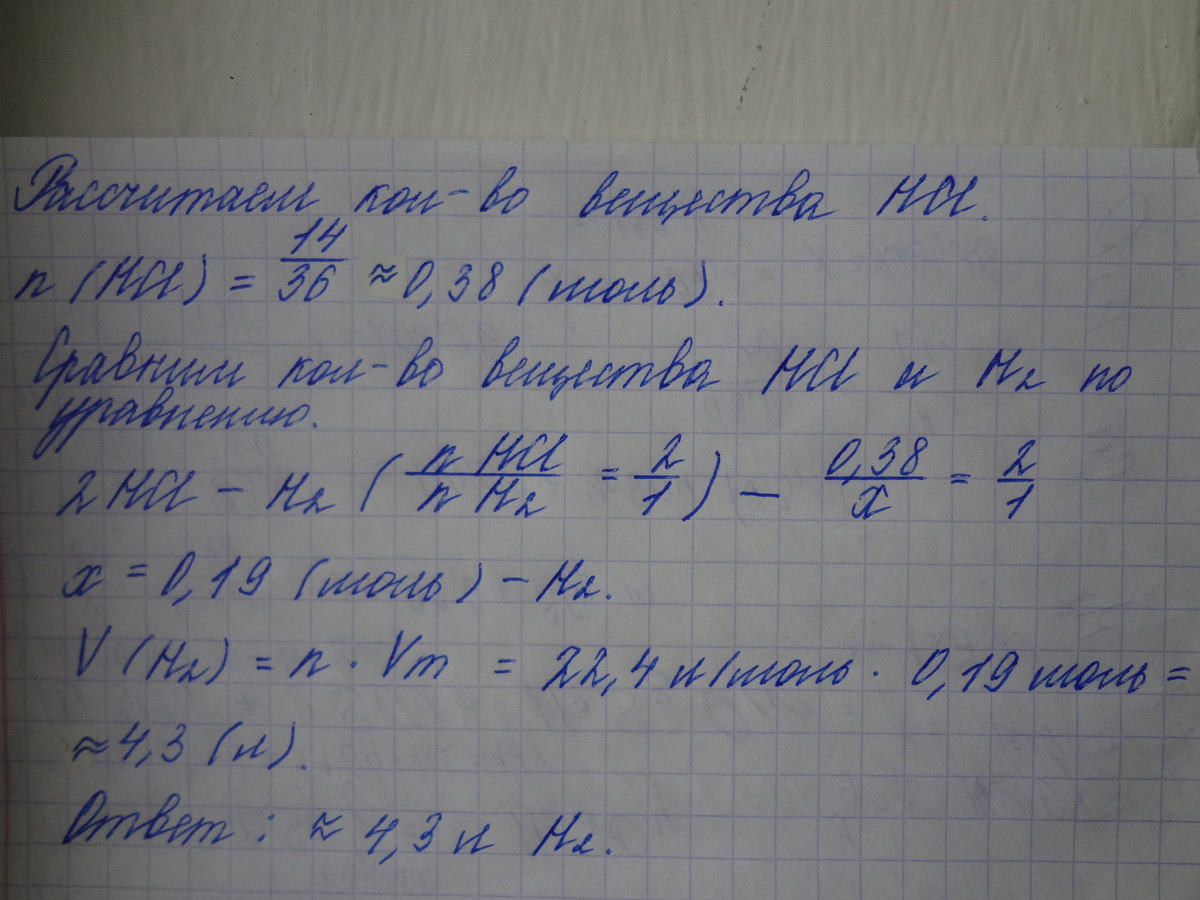 Рассчитаем кол-во вещества HCl.
n (HCl) = 14/36 ≈ 0,38 (моль).
Сравним кол-во вещества HCl и H₂ по
уравнению.
2HCl – H₂ (n HCl / n H₂ = 2/1) – 0,38/x = 2/1
x = 0,19 (моль) – H₂.
V (H₂) = n · Vm = 22,4 л/моль · 0,19 моль =
≈ 4,3 (л).
Ответ: ≈ 4,3 л H₂.